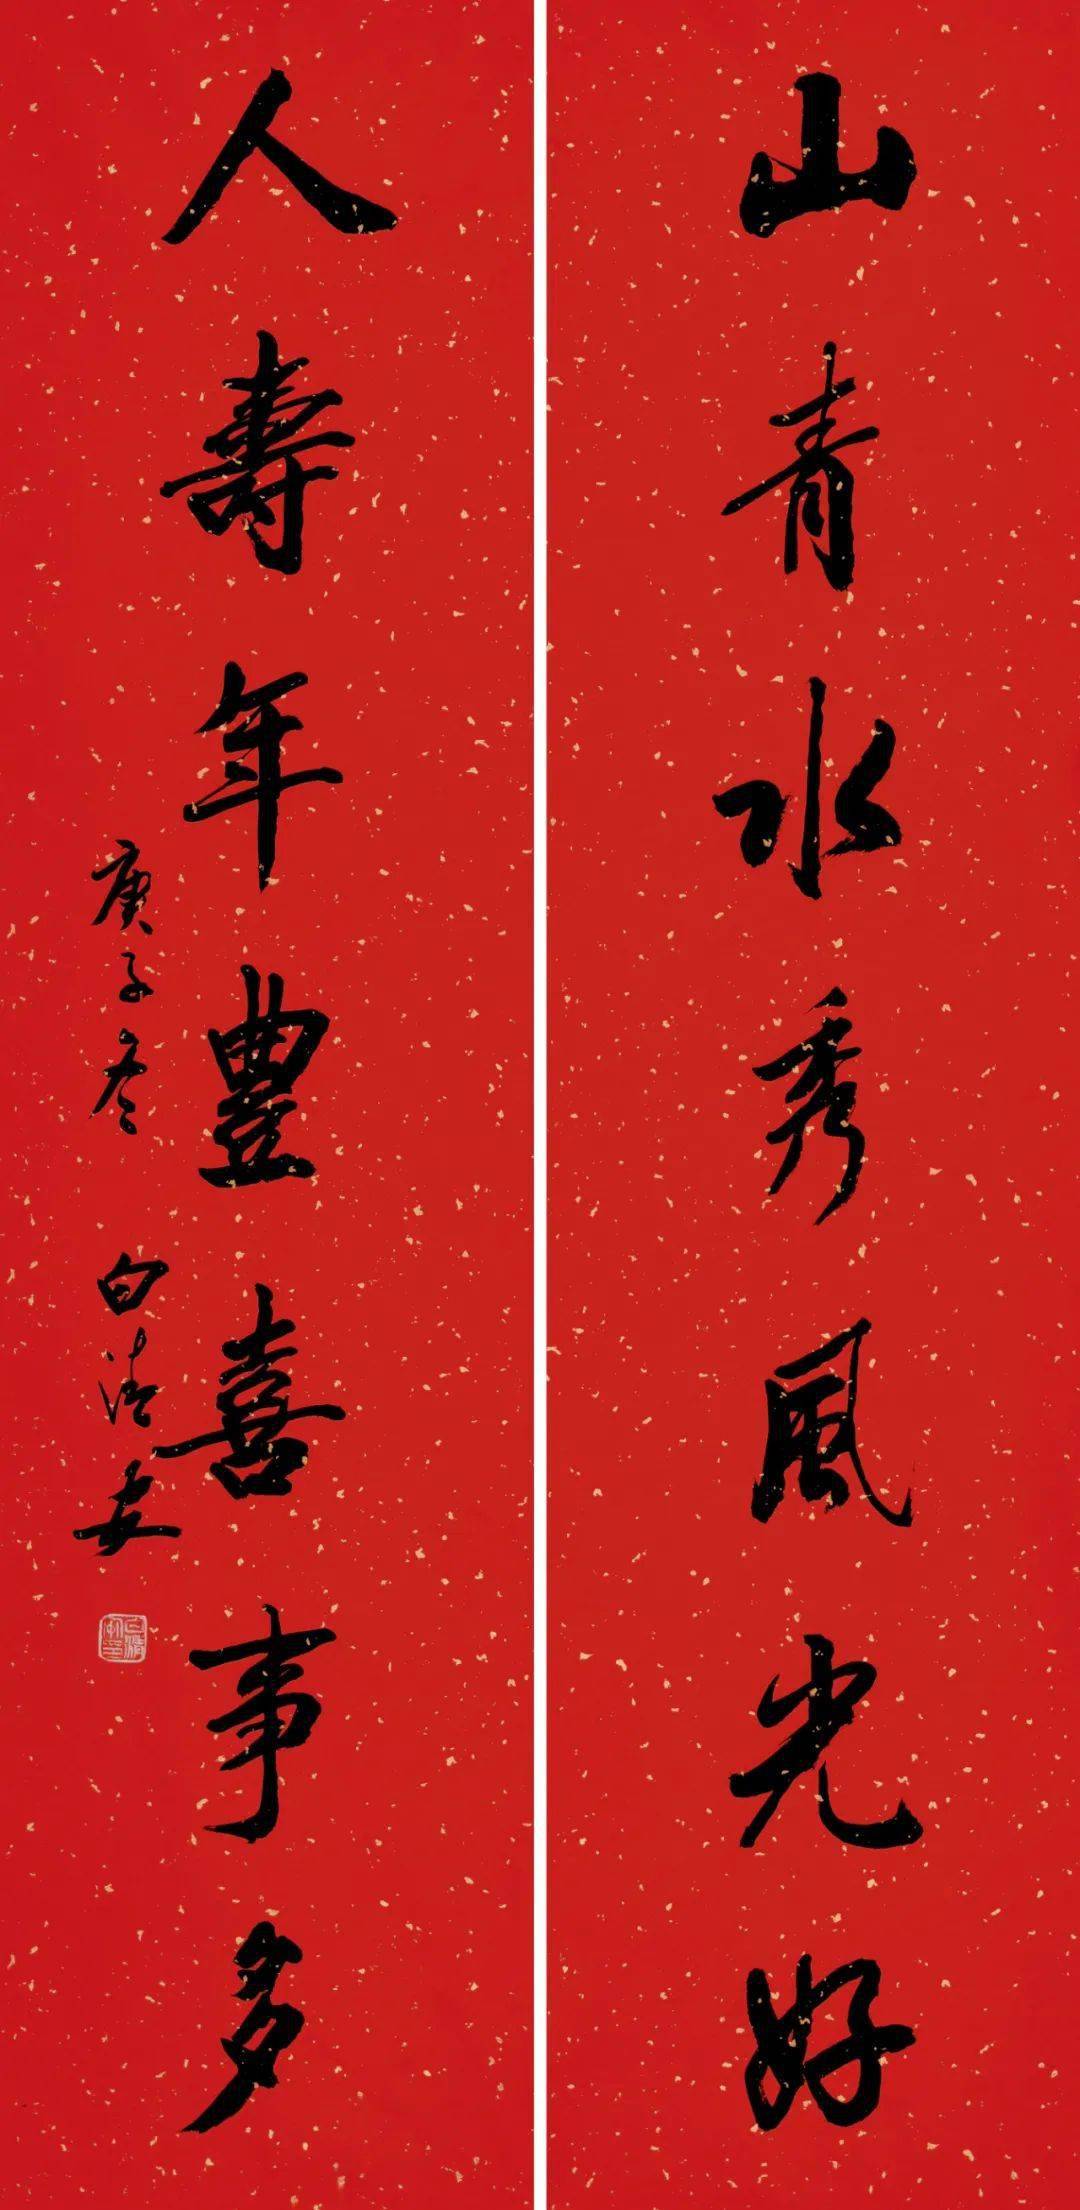 山青水秀風光好
人壽年豐喜事多
庚子冬 白清安